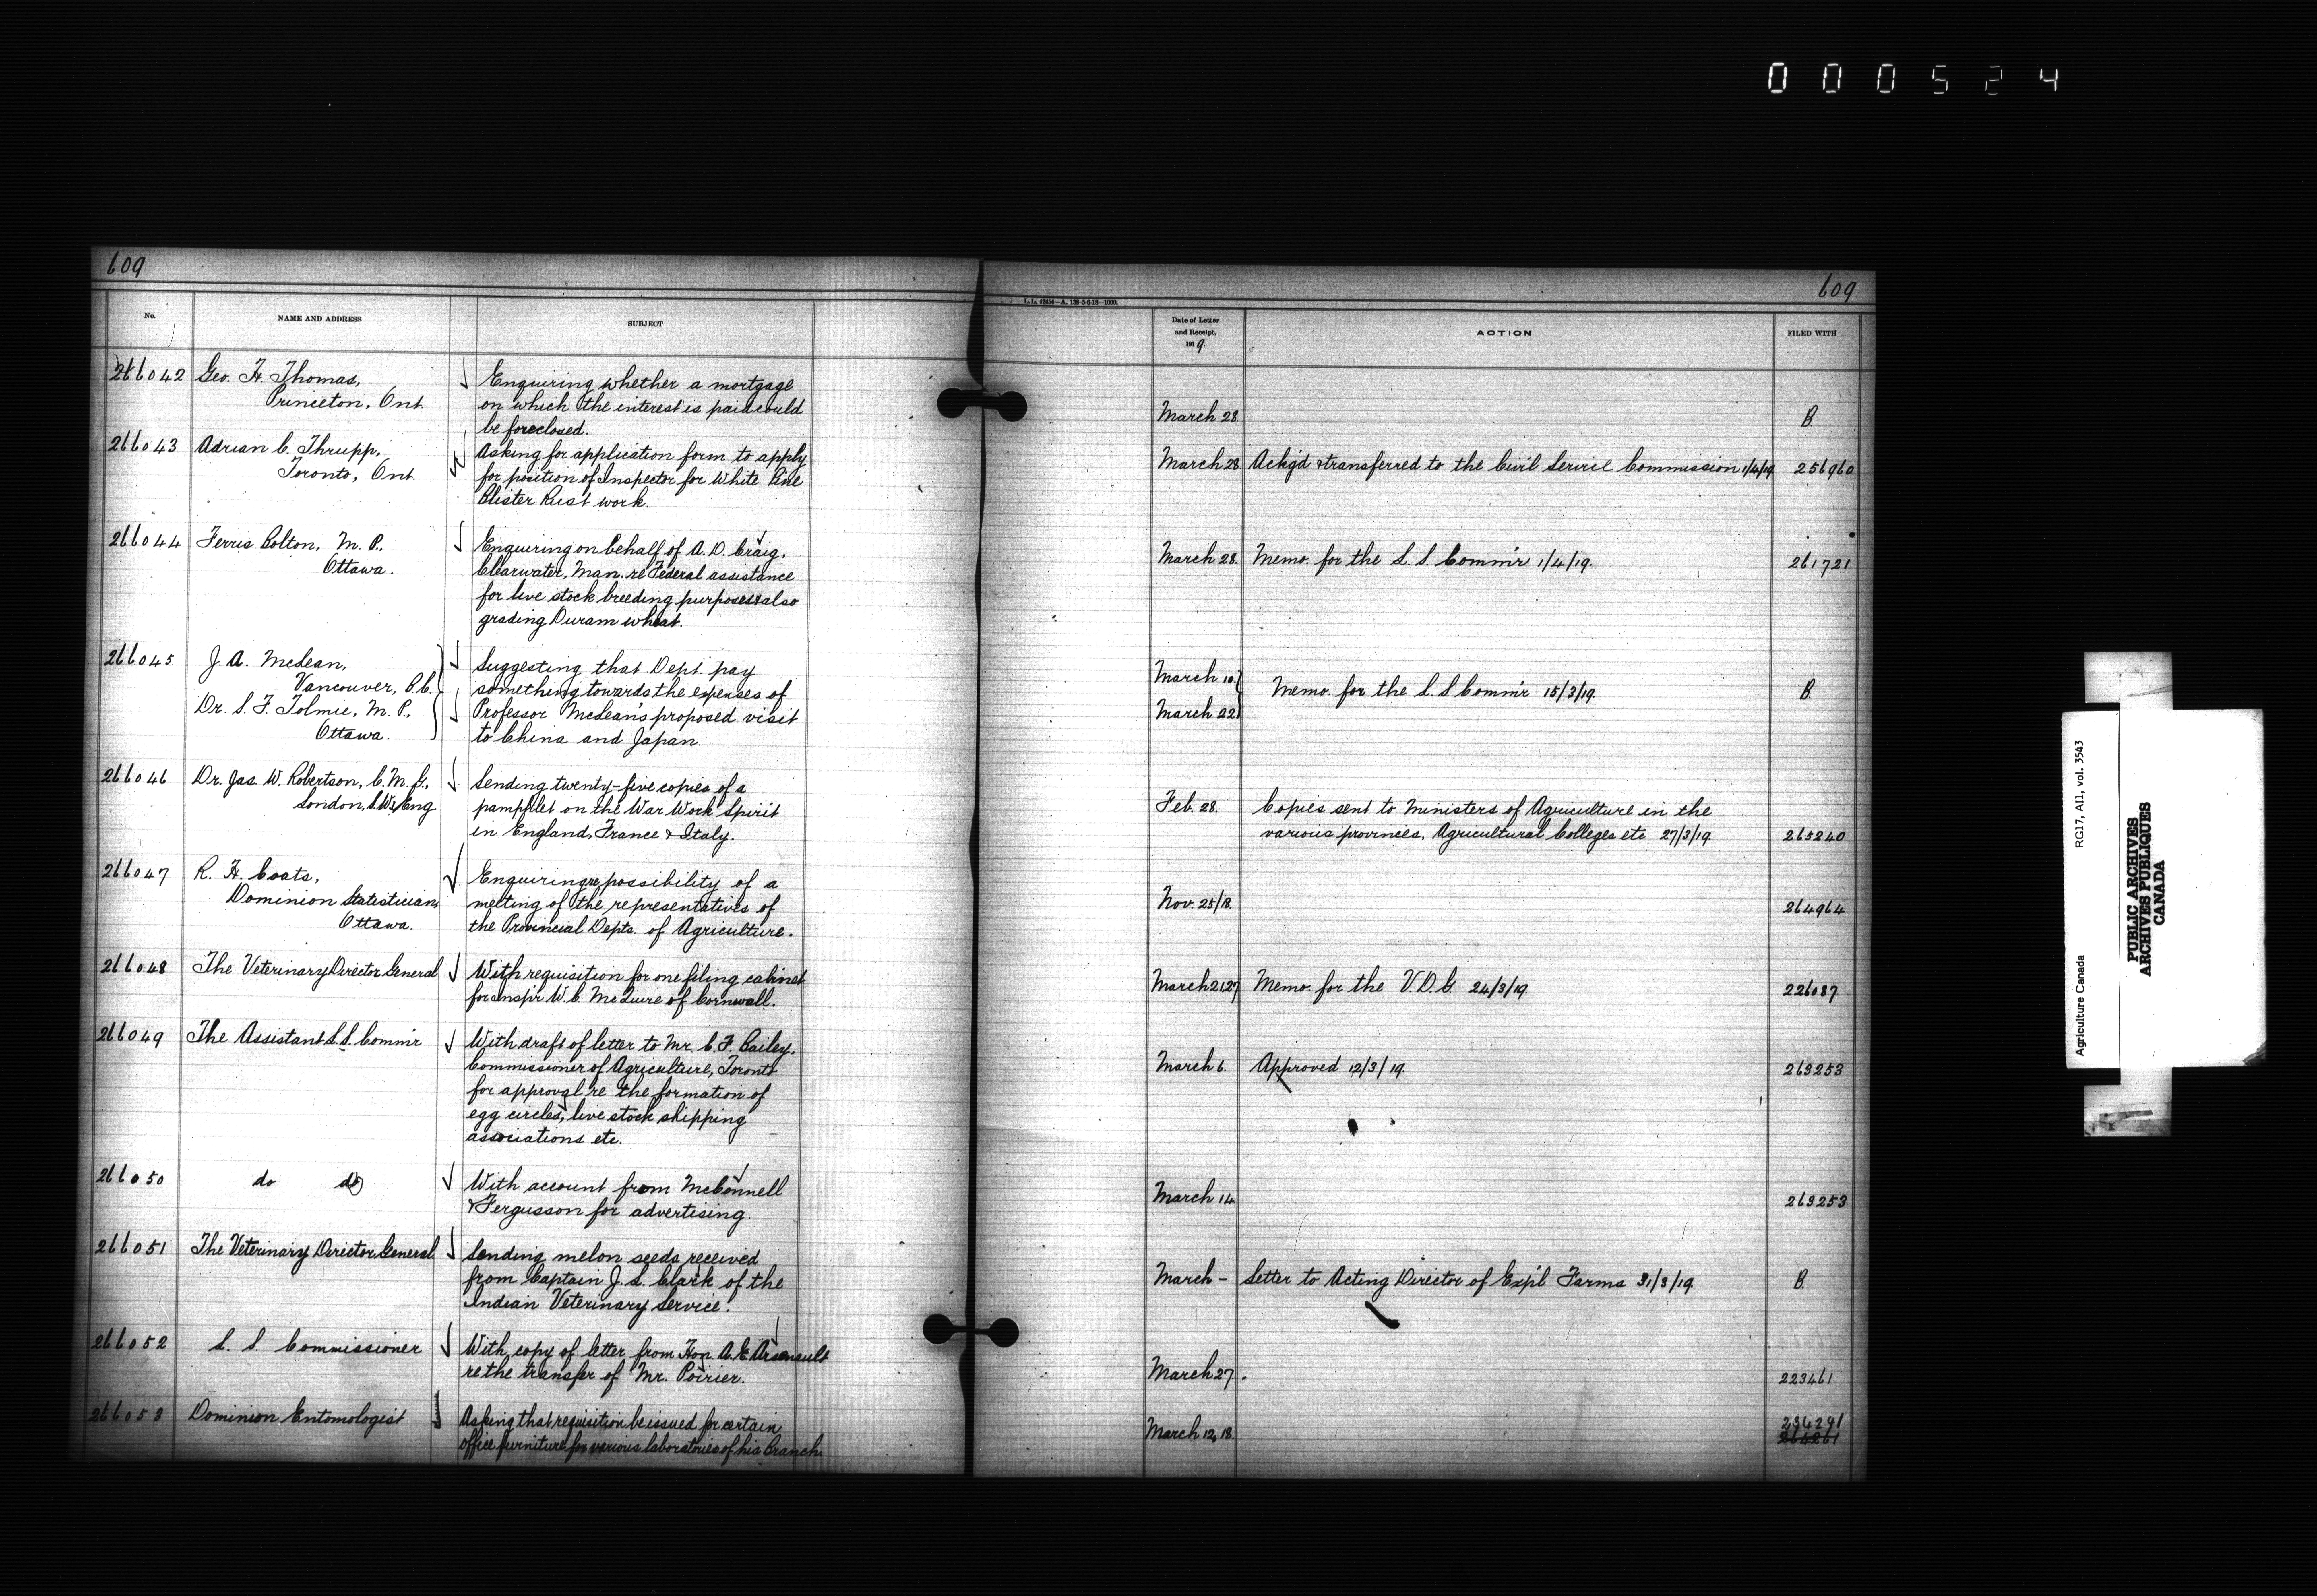 000524
609
609
L.L. 42814—A. 128-5-6-18—1000.
No.
NAME AND ADDRESS
SUBJECT
Date of Letter
and Receipt,
1919.
ACTION
FILED WITH
266042
Geo. H. Thomas,
Princeton, Ont.
Enquiring whether a mortgage
on which the interest is paid could
be foreclosed.
March 28.
B.
266043
Adrian C. Thrupp,
Toronto, Ont.
Asking for application form to apply
for position of Inspector for White Pine
Blister Rust work.
March 28.
Ackg'd & transferred to the Civil Service Commission 1/4/19.
256960
266044
Ferris Bolton, M.P.,
Ottawa.
Enquiring on behalf of A. D. Craig,
Clearwater, Man. re Federal assistance
for live stock breeding purposes & also
grading Duram wheat.
March 28.
Memo. for the L. S. Comm'r 1/4/19.
261721
266045
J. A. McLean,
Vancouver, B.C.
Dr. S. F. Tolmie, M.P.,
Ottawa.
Suggesting that Dept. pay
something towards the expenses of
Professor McLean's proposed visit
to China and Japan.
March 10.
March 22.
Memo. for the L. S. Comm'r 15/3/19.
B.
266046
Dr. Jas. W. Robertson, C.M.G.,
London, S.W.1, Eng
Sending twenty-five copies of a
pamphlet on the War Work Spirit
in England, France & Italy.
Feb. 28.
Copies sent to Ministers of Agriculture in the
various provinces, Agricultural Colleges etc 27/3/19.
265240
266047
R. H. Coats,
Dominion Statistician,
Ottawa.
Enquiring re possibility of a
meeting of the representatives of
the Provincial Depts. of Agriculture.
Nov. 25/18.
264964
266048
The Veterinary Director General
With requisition for one filing cabinet
for Insp'r W. C. McGuire of Cornwall.
March 21, 27
Memo. for the V. D. G. 24/3/19.
226087
266049
The Assistant L. S. Comm'r
With draft of letter to Mr. C. F. Bailey,
Commissioner of Agriculture, Toronto
for approval re the formation of
egg circles, live stock shipping
associations etc.
March 6.
Approved 12/3/19.
263253
266050
do do
With account from McConnell
& Fergusson for advertising.
March 14.
263253
266051
The Veterinary Director General.
Sending melon seeds received
from Captain J. S. Clark of the
Indian Veterinary Service.
March –
Letter to Acting Director of Exp'l Farms 31/3/19.
B.
266052
L. S. Commissioner
With copy of letter from Hon. A. E. Arsenault
re the transfer of Mr. Poirier.
March 27.
223461
266053
Dominion Entomologist
Asking that requisition be issued for certain
office furniture for various laboratories of his Branch.
March 12, 18.
234291
Agriculture Canada RG17, A11, vol. 3543
PUBLIC ARCHIVES
ARCHIVES PUBLIQUES
CANADA